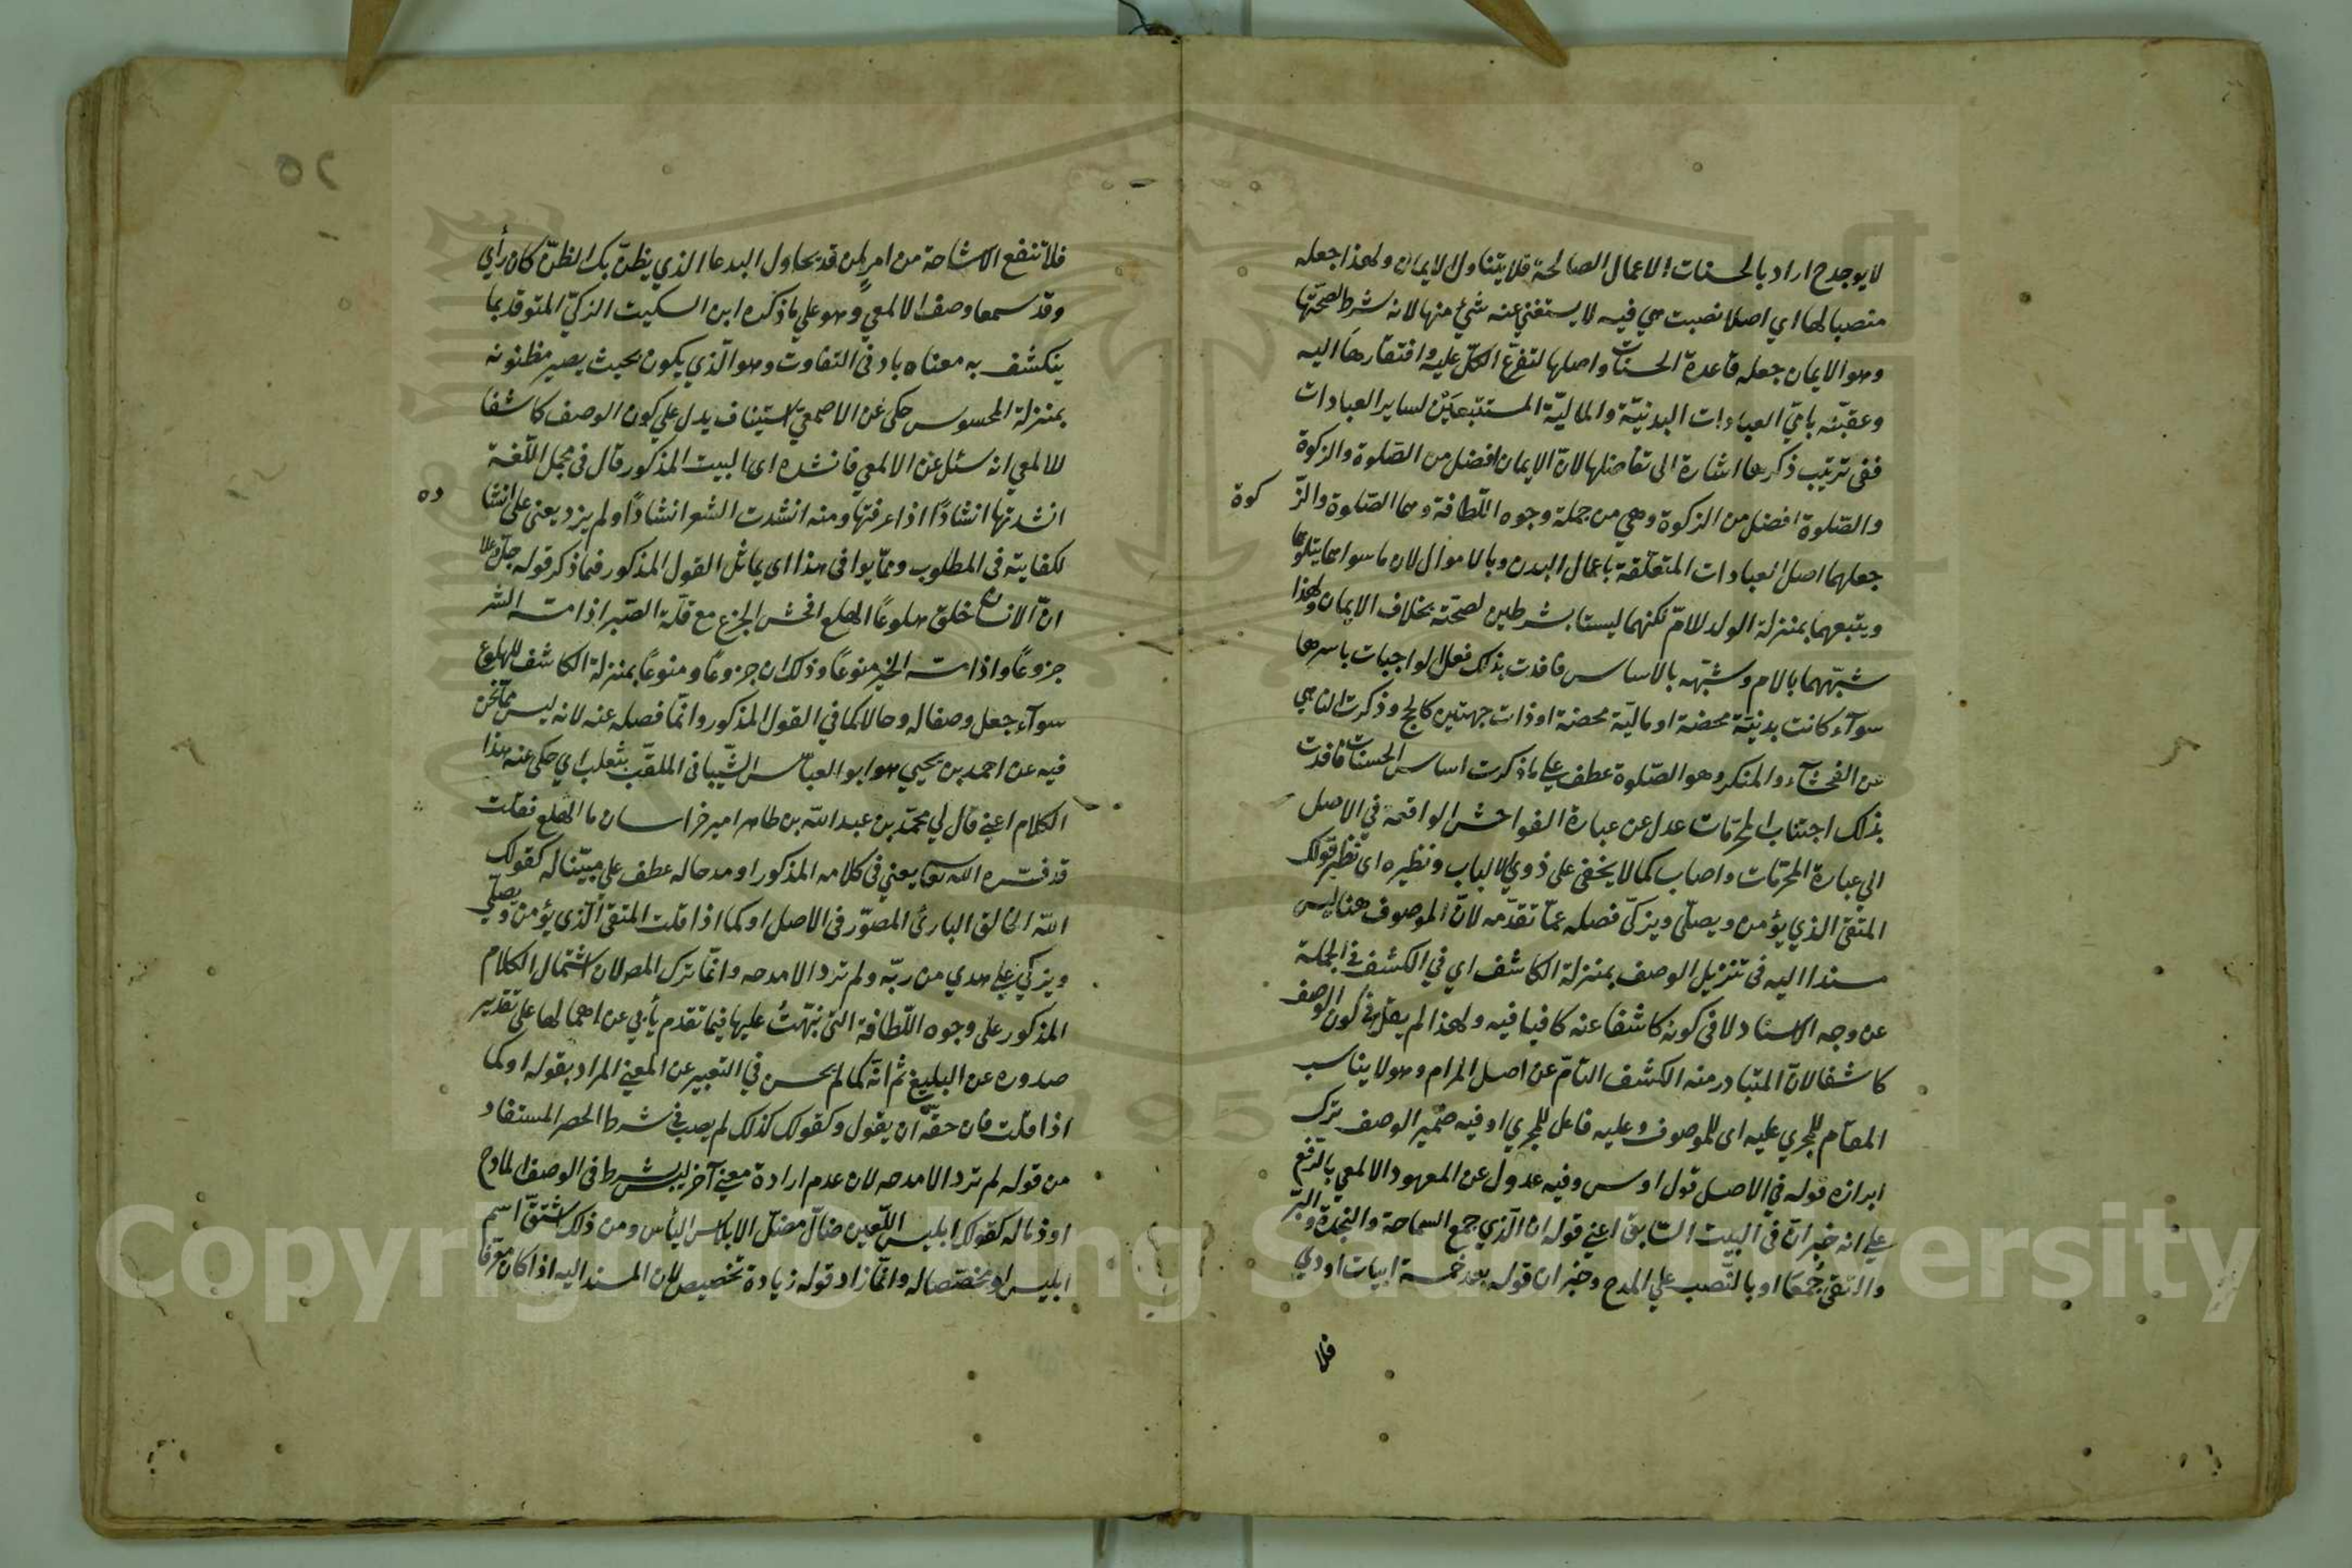 لا يوجد ح اراد بالحسنات الاعمال الصالحة فلا يتناول الايمان ولهذا جعله
منصبا لها اي اصلا نصبت هي فيه لا يستغني عنه شيئ منها لانه شرط لصحتها
وهو الايمان جعله قاعدة الحسنات واصلها لتفرع الكل عليه وافتقارها اليه
وعقبّه بامّي العبادات البدنيّة والماليّة المستتبعتين لساير العبادات
ففى ترتيب ذكرها اشارة الى تفاضلها لانّ الايمان افضل من الصلوة والزكوة
والصّلوة افضل من الزكوة وهي من جملة وجوه اللّطافة وهما الصّلوة والزّ
كوة
جعلهما اصل العبادات المتعلّقة باعمال البدن وبالاموال لان ما سواهما يتلوهما
ويتبعهما بمنزلة الولد للامّ لكنهما ليستا بشرطين لصحّته بخلاف الايمان ولهذا
شبّههما بالام وشبّهه بالاساس فافدت بذلك فعل الواجبات باسرها
سوآء كانت بدنيّة محضة او ماليّة محضة او ذات جهتين كالحج وذكرت الناهي
عن الفحشآء والمنكر وهو الصّلوة عطف علي ما ذكرت اساس الحسنات فافدت
بذلك اجتناب المحرّمات عدل عن عبارة الفواحش الواقعة في الاصل
الي عبارة المحرّمات واصاب كما لا يخفى على ذوي الالباب ونظيره اى نظير قولك
المتّقى الذي يؤمن ويصلّى ويزكّى فصله عمّا تقدّمه لانّ الموصوف هنا ليس
مسندا اليه فى تنزيل الوصف بمنزلة الكاشف اي في الكشف في الجملة
عن وجه الاسناد لا فى كونه كاشفا عنه كافيا فيه ولهذا لم يقل في كون الوصف
كاشفا لانّ المتبادر منه الكشف التامّ عن اصل المرام وهو لا يناسب
المقام للمجري عليه اى للموصوف وعليه فاعل للمجري او فيه ضمير الوصف ترك
ابرازه قوله في الاصل قول اوس وفيه عدول عن المعهود الالمعي بالرّفع
علي انه خبر انّ فى البيت السّابق اعني قوله ان الّذي جمع السماحة والنجدة والبرّ
والتقى جُمَعَا او بالنّصب علي المدح وخبر ان قوله بعد خمسة ابيات اودي
فلا
فلا تنفع الاشاحة من امر لمن قد يحاول البدعا الذي يظنّ بك الظنّ كان رأي
وقد سمعا وصف الالمعي وهو علي ما ذكره ابن السكيت الزكيّ المتوقد بما
ينكشف به معناه بادنى التفاوت وهو الّذي يكون بحيث يصير مظنونه
بمنزلة المحسوس حكى عن الاصمعيّ استيناف يدل علي كون الوصف كاشفا
للالمعي انه سئل عن الالمعي فانشده اى البيت المذكور قال فى مجمل اللّغة
انشدتها انشادًا اذا عرفتها ومنه انشدت الشعر انشادًا ولم يزد يعني على انشا
ده
لكفايته فى المطلوب وممّا يوافى هذا اى يماثل القول المذكور فما ذكر قوله جلّ وعلا
انّ الانسان خلق هلوعًا الهلع افحش الجزع مع قلّة الصّبر اذا مسه الشر
جزوعًا واذا مسه الخير منوعًا وذلك ان جزوعًا ومنوعًا بمنزلة الكاشف للهلوع
سوآء جعل وصفا له او حالا كما في القول المذكور وانّما فصله عنه لانه ليس ممّا نحن
فيه عن احمد بن يحيي هو ابو العبّاس الشّيبانى الملقّب بثعلب اي حكى عنه هذا
الكلام اعني قال لي محمّد بن عبد الله بن طاهر امير خراسان ما الهلع فقلت
قد فسّره الله تعا يعني فى كلامه المذكور او مدحا له عطف على مبيّنا له كقولك
الله الخالق البارئ المصوّر فى الاصل او كما اذا قلت المتقى الّذي يؤمن ويصلّي
ويزكّي علي هدي من ربّه ولم ترد الا مدحه وانّما ترك المص لان اشتمال الكلام
المذكور على وجوه اللّطافة التى نبّهتُ عليها فيما تقدم يأبي عن اهمالها على تقدير
صدوره عن البليغ ثم انّه كما لم يحسن في التعبير عن المعني المراد بقوله او كما
اذا قلت فان حقّه ان يقول وكقولك كذلك لم يصب في شرط الحصر المستفاد
من قوله لم ترد الا مدحه لان عدم ارادة معني آخر ليس بشرط فى الوصف المادح
او ذمّا له كقولك ابليس اللّعين ضالّ مضلّ الابلاس اليأس ومن ذلك اشتقّ اسم
ابليس او مخصّصا له وانّما زاد قوله زيادة تخصيص لان المسند اليه اذا كان معرّفا
Copyright © King Saud University
1957